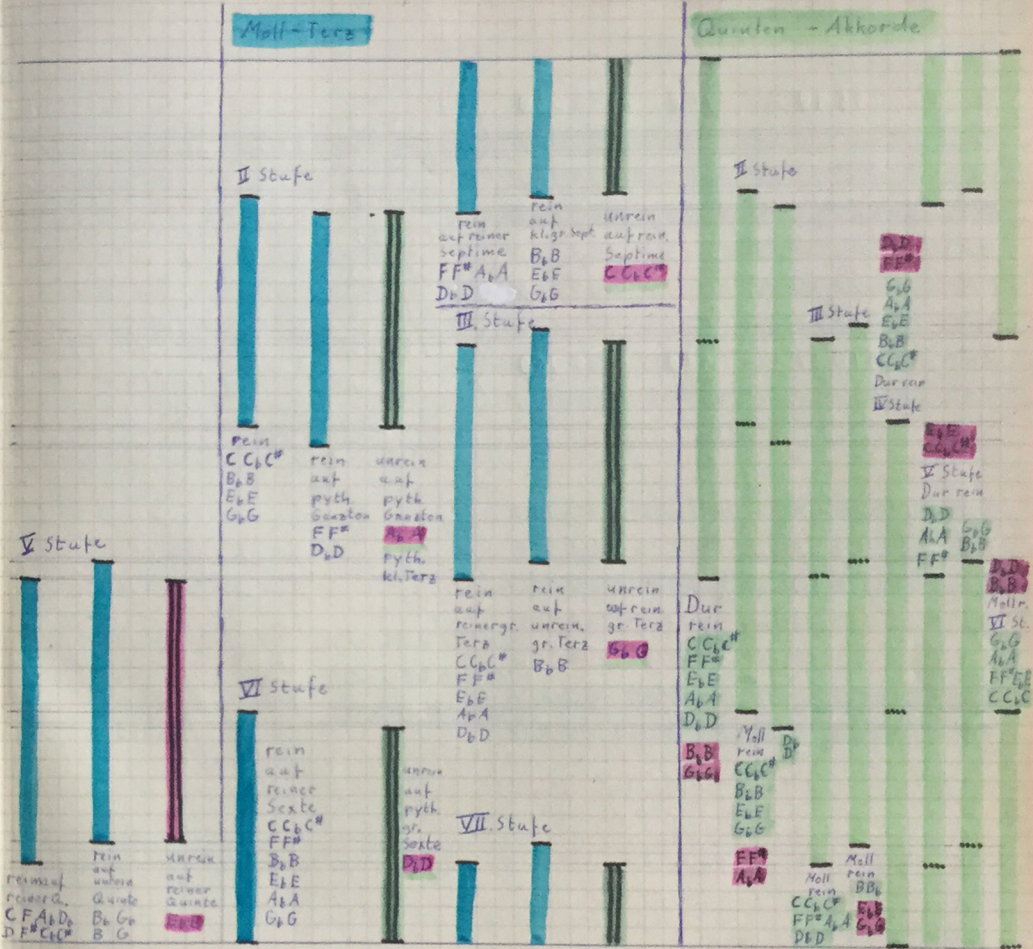 Moll-Terz
Quinten - Akkorde
V Stufe
rein auf
reiner Q.
C F A♭ D♭
D F# C♭ C#
rein
auf
unrein
Quinte
B♭ G♭
B G
unrein
auf
reiner
Quinte
E♭ E
II Stufe
rein
C C♭ C#
B♭ B
E♭ E
G♭ G
rein
auf
pyth.
Ganzton
F F#
D♭ D
unrein
auf
pyth.
Ganzton
A♭ A
pyth.
kl. Terz
VI Stufe
rein
auf
reiner
Sexte
C C♭ C#
F F#
B♭ B
E♭ E
A♭ A
G♭ G
unrein
auf
pyth.
gr.
Sexte
D♭ D
rein
auf reiner
Septime
F F# A♭ A
D♭ D
rein
auf
kl. gr. Sept.
B♭ B
E♭ E
G♭ G
unrein
auf rein.
Septime
C C♭ C#
III. Stufe
rein
auf
reiner gr.
Terz
C C♭ C#
F F#
E♭ E
A♭ A
D♭ D
rein
auf
unrein.
gr. Terz
B♭ B
unrein
auf rein.
gr. Terz
G♭ G
VII. Stufe
Dur
rein
C C♭ C#
F F#
E♭ E
A♭ A
D♭ D
B♭ B
G♭ G
II Stufe
Moll
rein
C C♭ C#
B♭ B
E♭ E
G♭ G
F F#
A♭ A
D♭
D
III Stufe
Moll
rein
C C♭ C#
F F# A♭ A
D♭ D
Moll
rein
B B♭
E♭ E
G♭ G
D♭ D
F F#
G♭ G
A♭ A
E♭ E
B♭ B
C C♭ C#
Dur rein
IV Stufe
E♭ E
C C♭ C#
V Stufe
Dur rein
D♭ D
A♭ A
F F#
G♭ G
B♭ B
D♭ D
B♭ B
Moll r.
VI St.
G♭ G
A♭ A
F F# E♭ E
C C♭ C